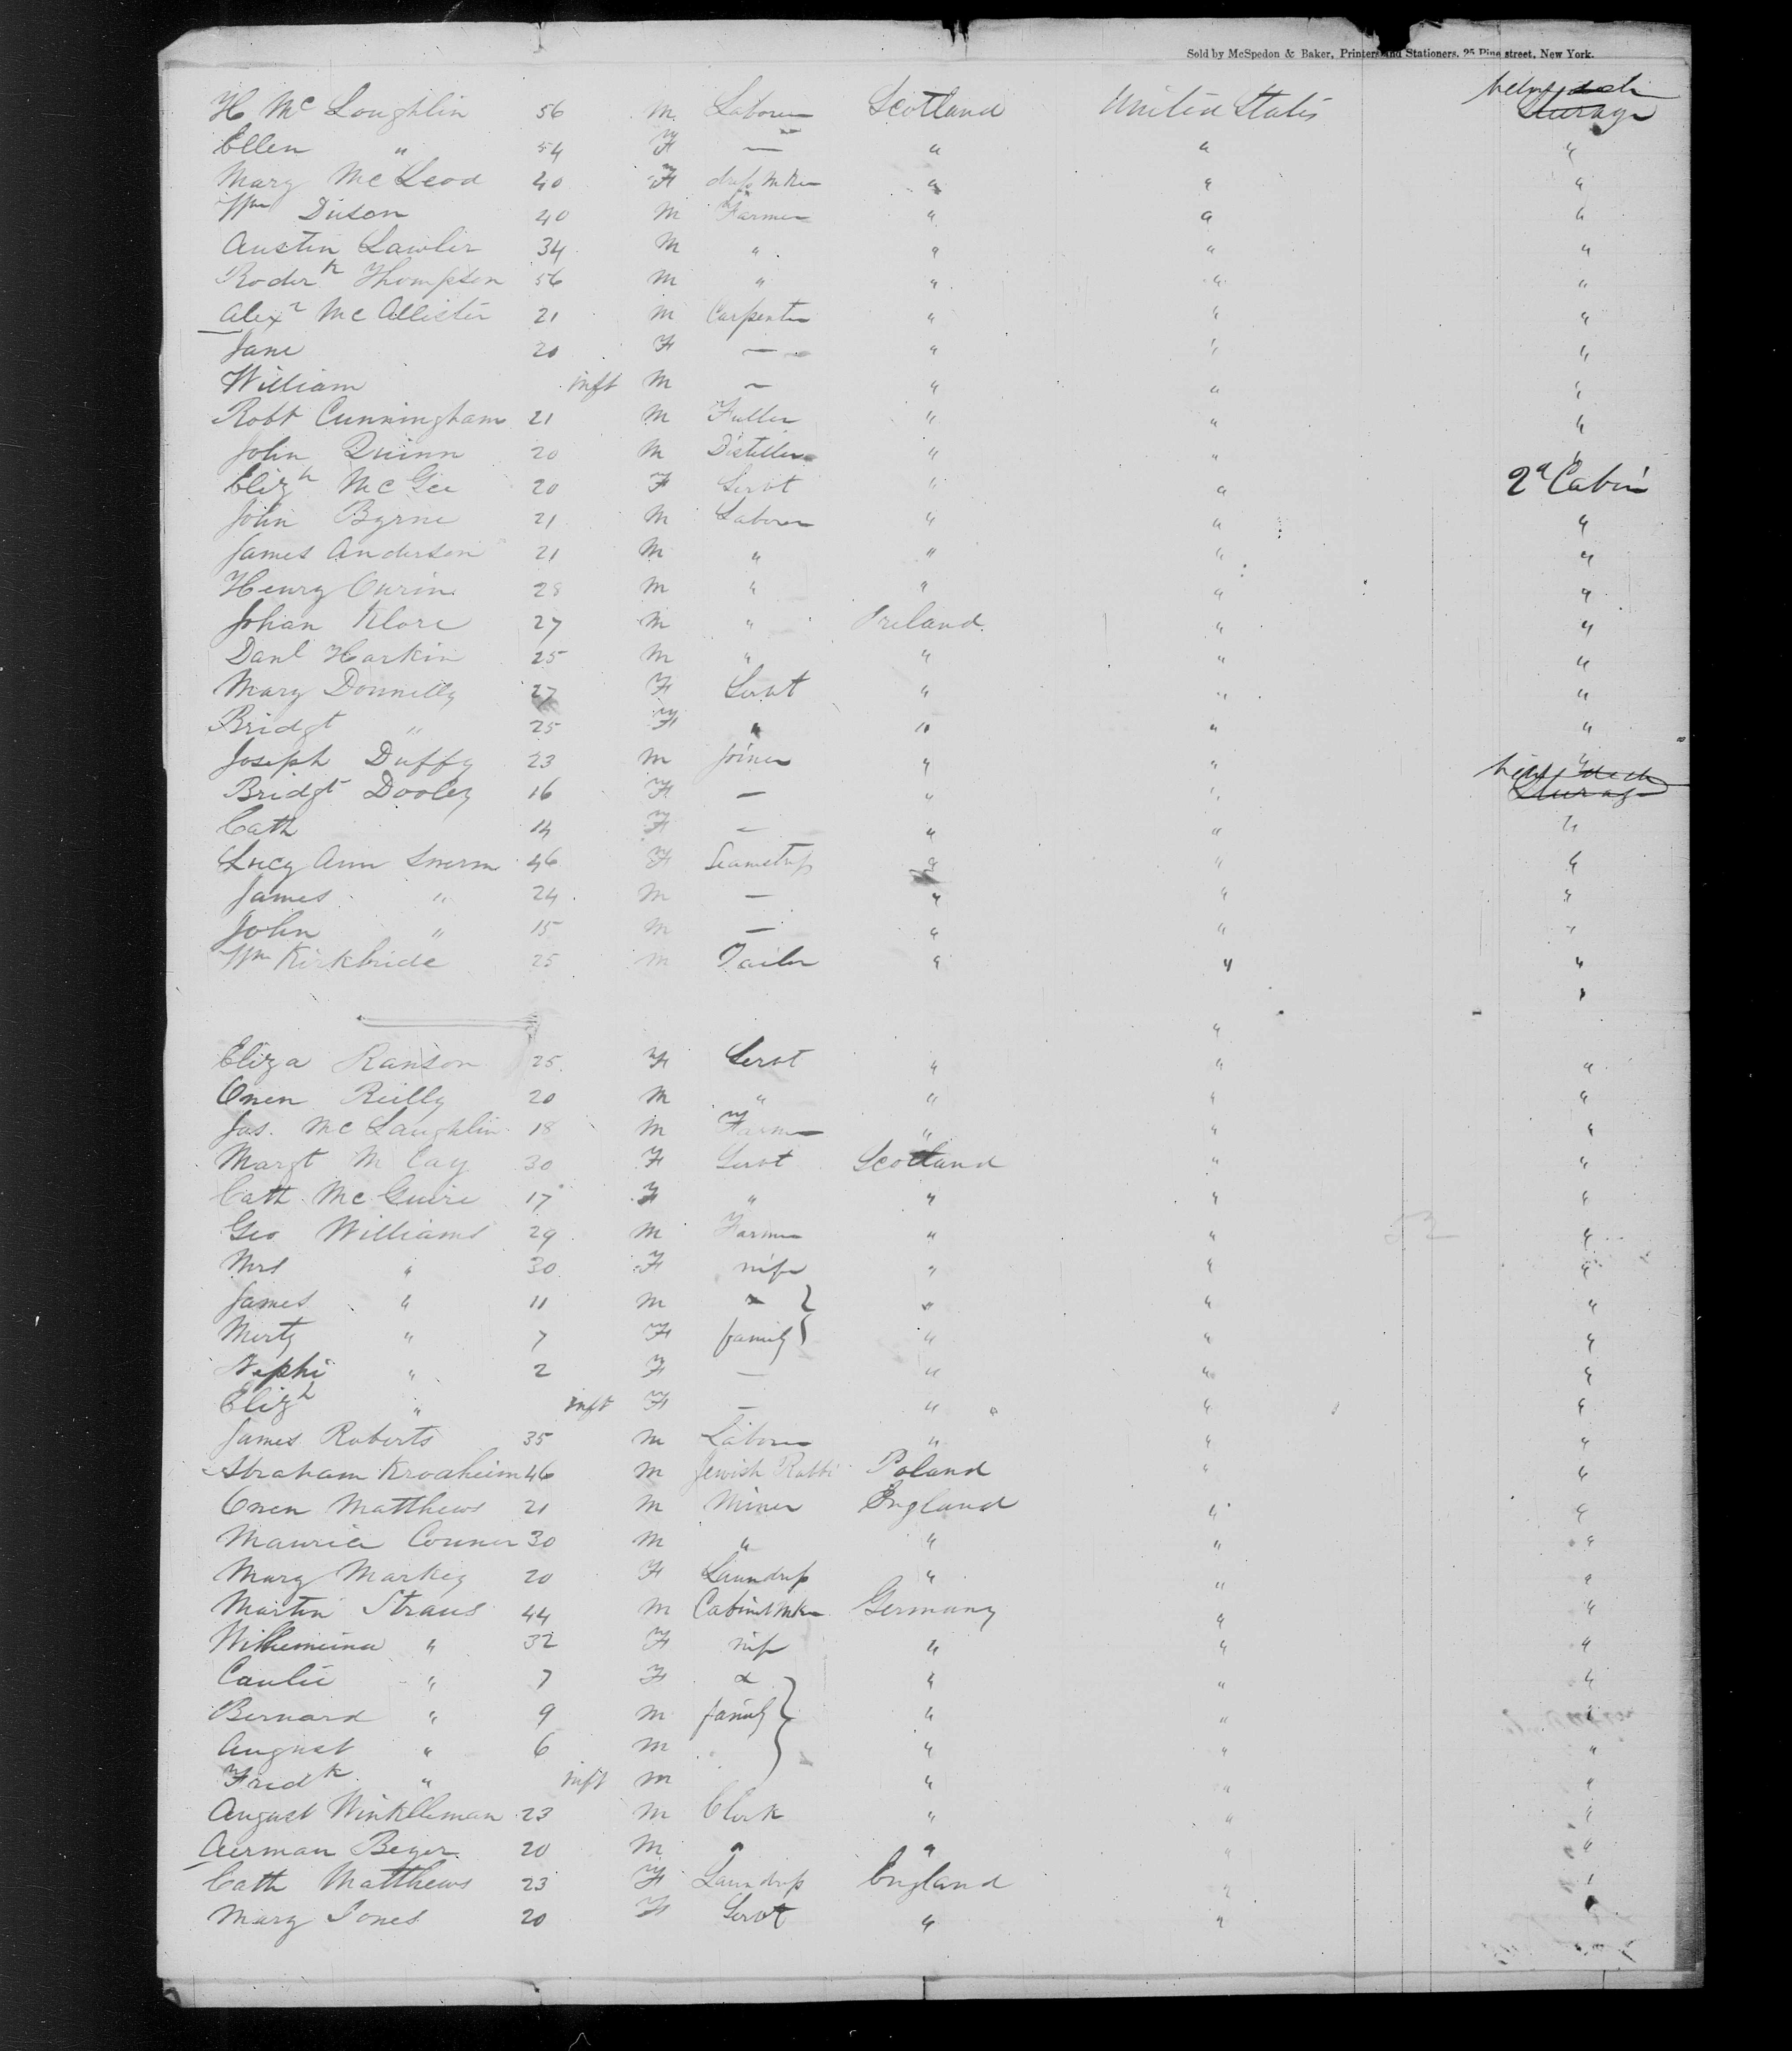 Sold by McSpedon & Baker, Printers and Stationers, 25 Pine street, New York.
H McLoughlin 56 M Laborer Scotland United States Steerage
Ellen " 54 F — " " "
Mary McLeod 40 F " " "
Wm 40 M Farmer " " "
Austin Lawler 34 M " " " "
Roderk Thompson 56 M " " " "
Alexr McAllister 21 M Carpenter " " "
Jane 20 F — " " "
William inft M — " " "
Robt Cunningham 21 M Fuller " " "
John Quinn 20 M Distiller " " "
Elizh McGee 20 F Servt " " 2d Cabin
John Byrne 21 M Laborer " " "
James Anderson 21 M " " " "
Henry 28 M " " " "
Johan Klore 27 M " Ireland " "
Danl Harkin 25 M " " " "
Mary Donnelly 27 F Servt " " "
Bridgt " 25 F " " " "
Joseph Duffy 23 M Joiner " " "
Bridgt Dooley 16 F — " " Steerage
Cath 14 F — " " "
Lucy Ann 46 F " " "
James " 24 M — " " "
John " 15 M — " " "
Wm Kirkbride 25 M Tailor " " "
"
"
Eliza Ranson 25 F Servt " " "
Owen Reilly 20 M " " " "
Jas. McLaughlin 18 M Farmer " " "
Margt McCay 30 F Servt Scotland " "
Cath McGuire 17 F " " " "
Geo Williams 29 M Farmer " " "
Mrs " 30 F wife " " "
James " 11 M " " "
" 7 F family " " "
Nephi " 2 F — " " "
Elizh " inft F — " " "
James Roberts 35 M Laborer " " "
Abraham 46 M Jewish Rabbi Poland " "
Owen Matthews 21 M Miner England " "
Maurice Conner 30 M " " " "
Mary Markey 20 F Laundress " " "
Martin Straus 44 M Cabinetmkr Germany " "
Wilhemina " 32 F wife " " "
" 7 F " " "
Bernard " 9 M family " " "
August " 6 M " " "
Fredk " inft M " " "
August Winkelleman 23 M Clerk " " "
Aerman Beyer 20 M " " " "
Cath Matthews 23 F Laundress England " "
Mary Jones 20 F Servt " "